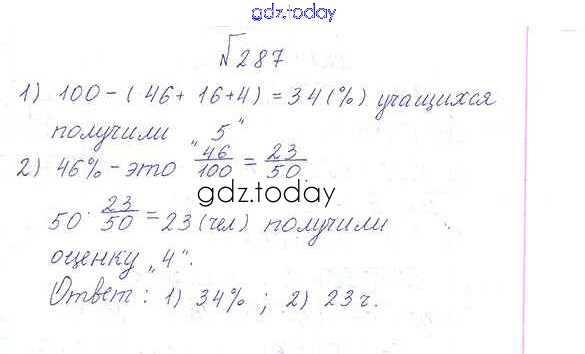 gdz.today
№287
1) 100-(46+16+4)=34(%) учащихся
получили "5"
2) 46% - это 46/100 = 23/50.
gdz.today
50 · 23/50 = 23 (чел) получили
оценку „4".
Ответ: 1) 34%; 2) 23 ч.